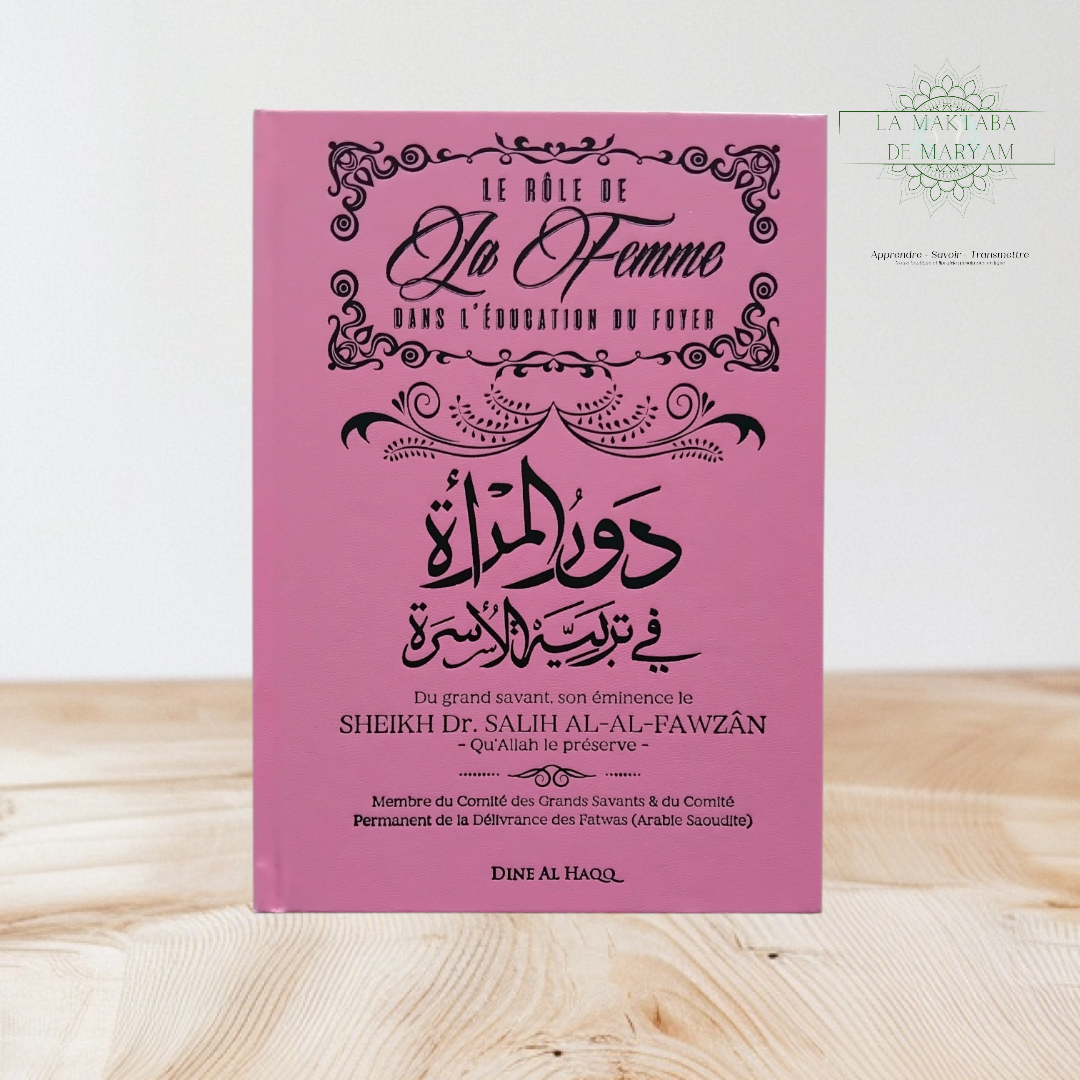 LA MAKTABA
DE MARYAM
Apprendre - Savoir - Transmettre
LE RÔLE DE
La Femme
DANS L'ÉDUCATION DU FOYER
دَورُ المَرْأَة
في تَربِيَّةِ الأُسرَة
Du grand savant, son éminence le
SHEIKH Dr. SALIH AL-AL-FAWZÂN
- Qu'Allah le préserve -
Membre du Comité des Grands Savants & du Comité
Permanent de la Délivrance des Fatwas (Arabie Saoudite)
DINE AL HAQQ